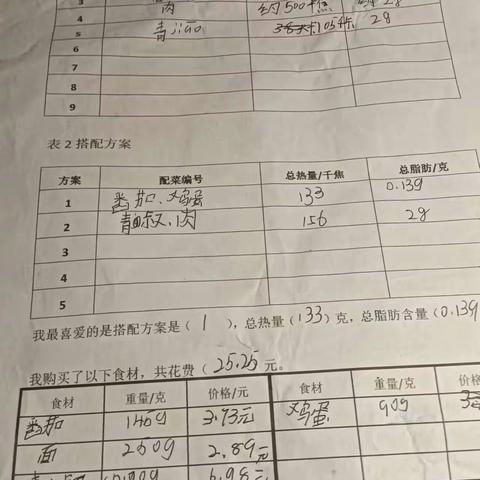 3
4 肉 约500千焦 2g
5 青jiāo 105千焦 2g
6
7
8
9
表2 搭配方案
方案 配菜编号 总热量/千焦 总脂肪/克
1 番茄、鸡蛋 133 0.139
2 青叔、肉 156 2g
3
4
5
我最喜爱的是搭配方案是（1），总热量（133）克，总脂肪含量（0.139
我购买了以下食材，共花费（25.25元。
食材 重量/克 价格/元 食材 重量/克 价格
番茄 146g 3.93元 鸡蛋 90g
面 250g 2.89元
6.98元